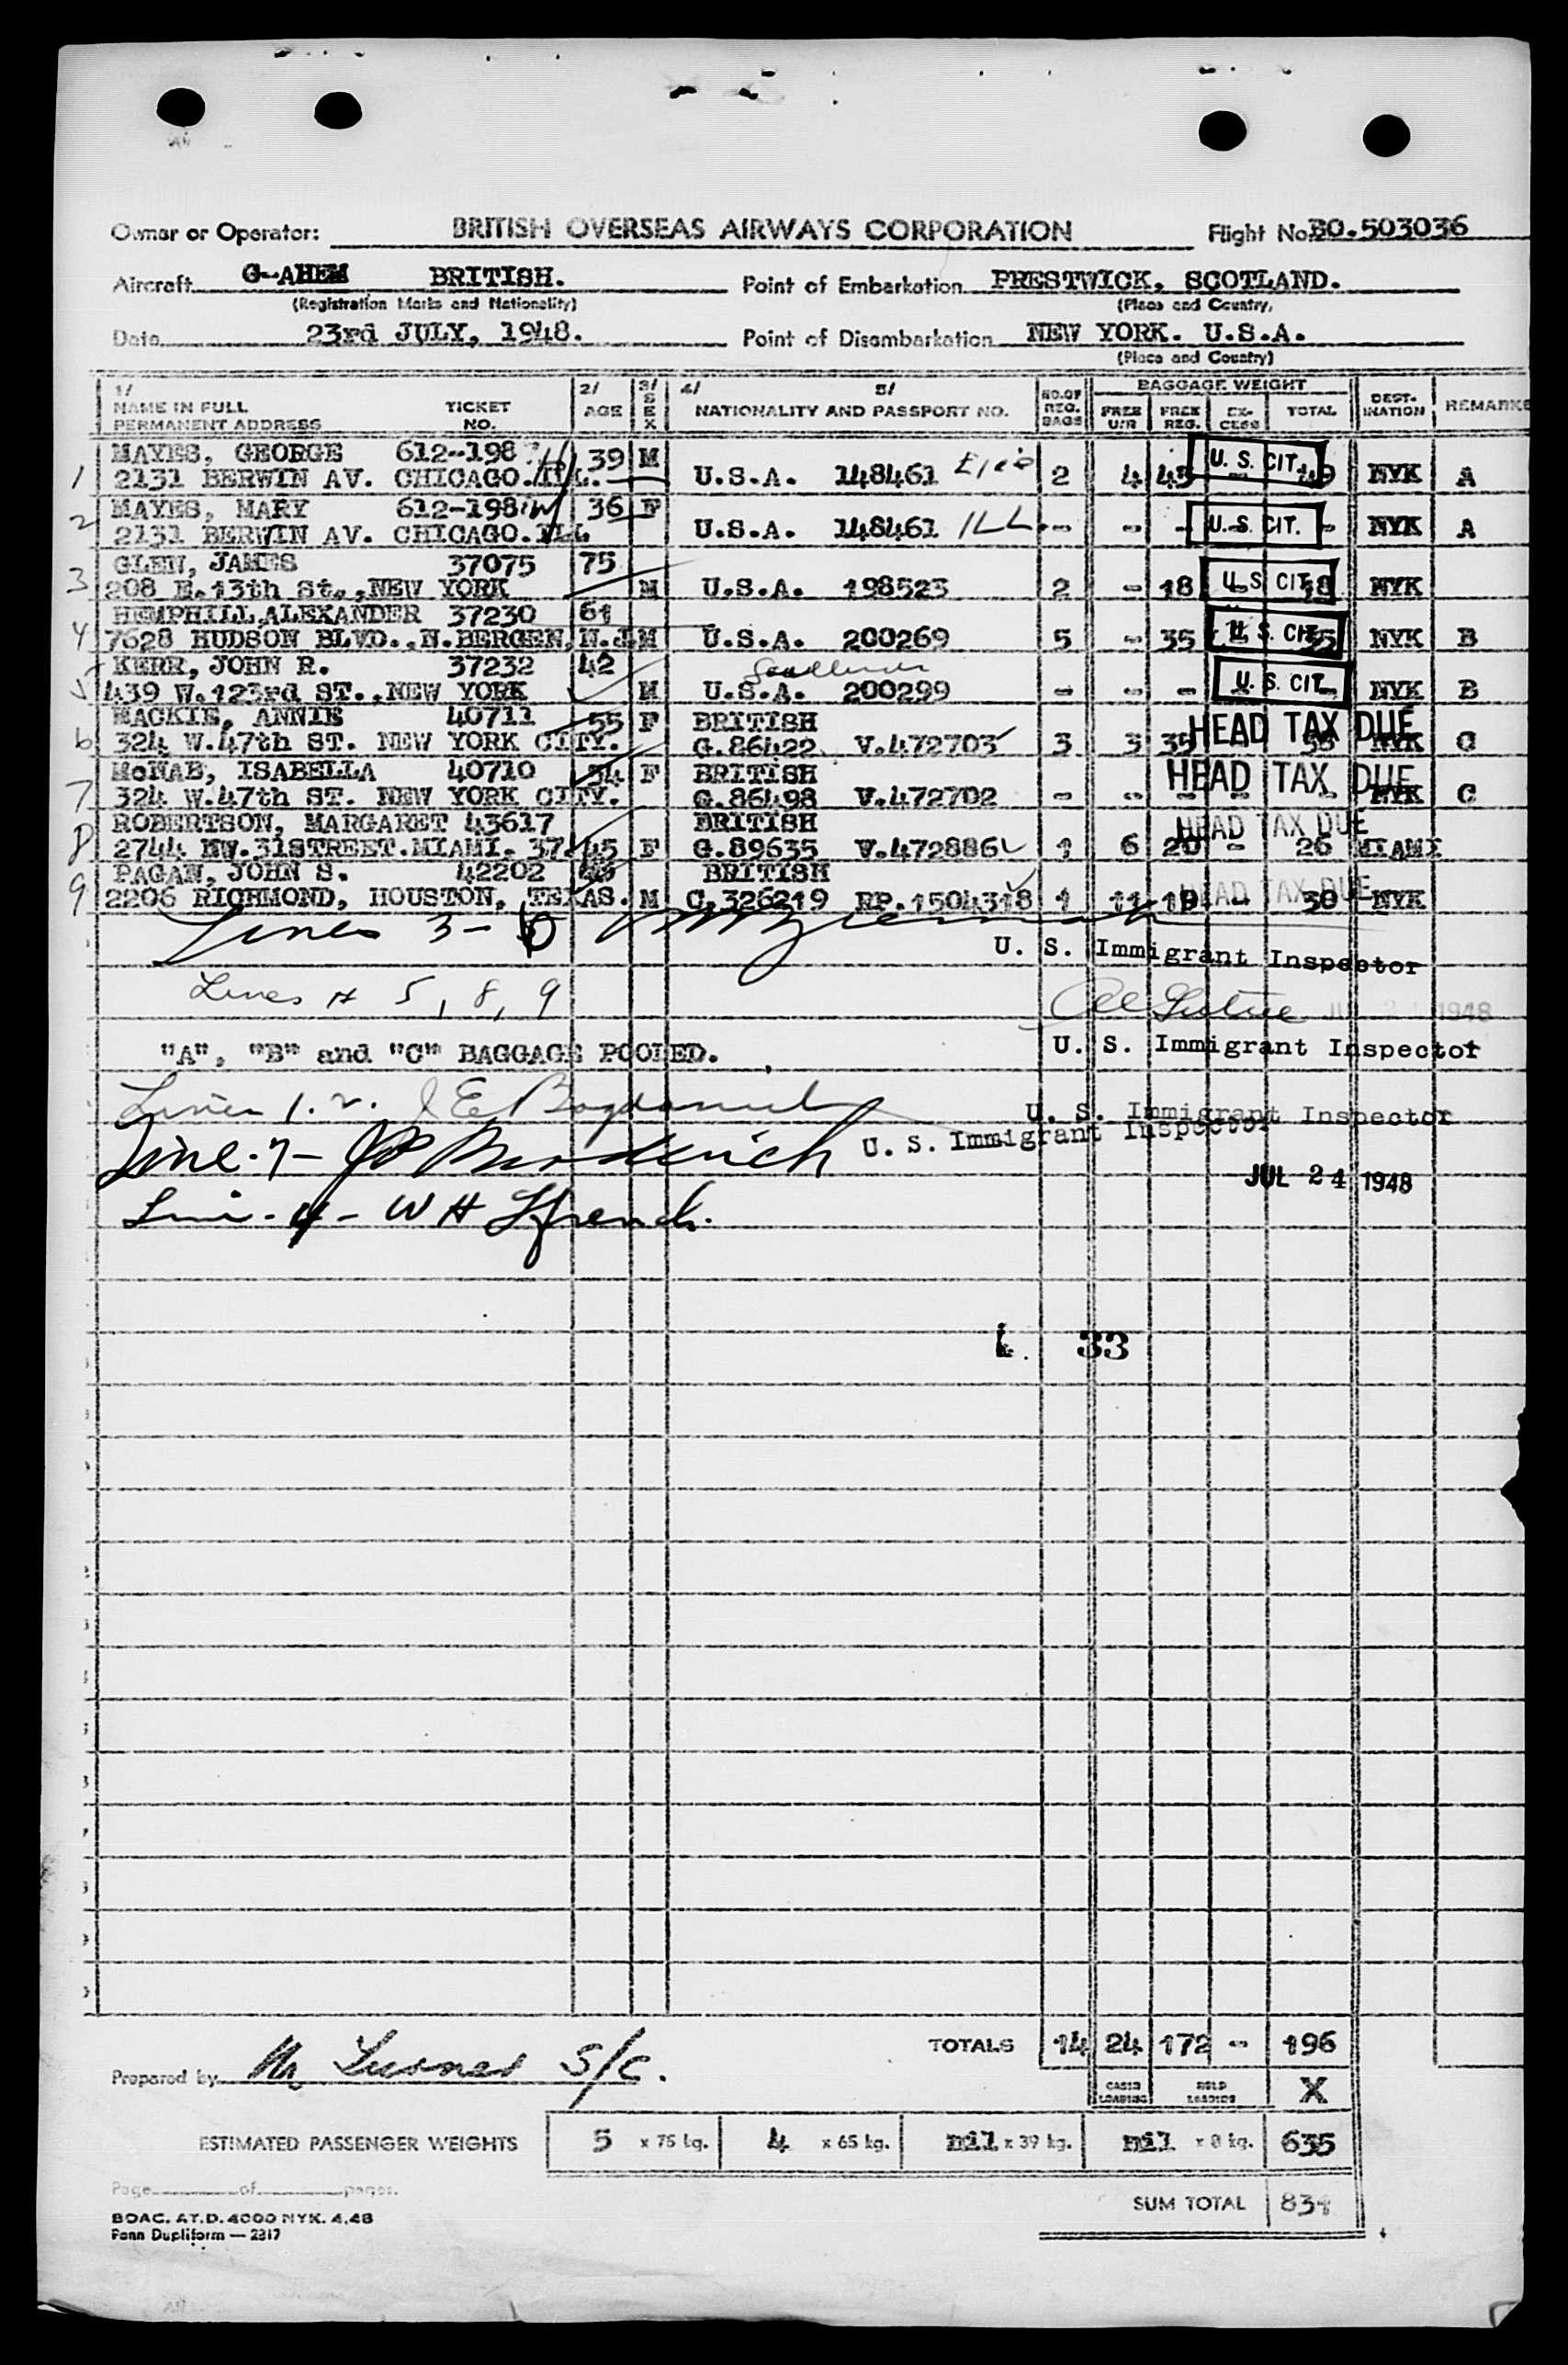 Owner or Operator: BRITISH OVERSEAS AIRWAYS CORPORATION Flight No. BO.503036
Aircraft G-AHEM BRITISH. Point of Embarkation PRESTWICK, SCOTLAND.
(Registration Marks and Nationality) (Place and Country)
Date 23rd JULY, 1948. Point of Disembarkation NEW YORK. U.S.A.
(Place and Country)
1/ 2/ 3/ 4/ 5/ BAGGAGE WEIGHT
NAME IN FULL TICKET AGE SEX NATIONALITY AND PASSPORT NO. NO.OF REG. BAGS FREE U/R FREE REG. EX-CESS TOTAL DEST-INATION REMARKS
PERMANENT ADDRESS NO.
MAYES, GEORGE 612-198 39 M U. S. CIT.
1 2131 BERWIN AV. CHICAGO. ILL. U.S.A. 148461 2 4 45 - 49 NYK A
MAYES, MARY 612-198 36 F
2 2131 BERWIN AV. CHICAGO. ILL U.S.A. 148461 ILL. - - - U. S. CIT. - NYK A
GLEN, JAMES 37075 75
3 208 E.13th St., NEW YORK M U.S.A. 198523 2 - 18 U. S. CIT. 18 NYK
HEMPHILL, ALEXANDER 37230 61
4 7628 HUDSON BLVD., N. BERGEN, N.J. M U.S.A. 200269 5 - 35 U. S. CIT. 35 NYK B
KERR, JOHN R. 37232 42
5 439 W.123rd ST., NEW YORK M U.S.A. 200299 - - - U. S. CIT. - NYK B
MACKIE, ANNIE 40711 55 F BRITISH HEAD TAX DUE
6 324 W.47th ST. NEW YORK CITY. G.86422 V.472703 3 3 35 38 NYK C
McNAB, ISABELLA 40710 54 F BRITISH HEAD TAX DUE
7 324 W.47th ST. NEW YORK CITY. G.86498 V.472702 - - - - - NYK C
ROBERTSON, MARGARET 43617 BRITISH HEAD TAX DUE
8 2744 NW.31STREET.MIAMI. 37. 45 F G.89635 V.472886 1 6 20 - 26 MIAMI
PAGAN, JOHN S. 42202 BRITISH HEAD TAX DUE
9 2206 RICHMOND, HOUSTON, TEXAS. M C.326219 RP.1504318 1 11 19 - 30 NYK
Lines 3-6
U. S. Immigrant Inspector
Lines # 5, 8, 9 1948
"A", "B" and "C" BAGGAGE POOLED. U. S. Immigrant Inspector
Lines 1. 2. U. S. Immigrant Inspector
Line-7- U. S. Immigrant Inspector
JUL 24 1948
Line-4- W H
33
TOTALS 14 24 172 - 196
Prepared by S/C.
CABIN LOADING HOLD LOADING X
ESTIMATED PASSENGER WEIGHTS 5 x 75 kg. 4 x 65 kg. nil x 39 kg. nil x 8 kg. 635
Page of pages.
SUM TOTAL 831
BOAC. AT.D. 4000 NYK. 4.48
Penn Dupliform — 2317